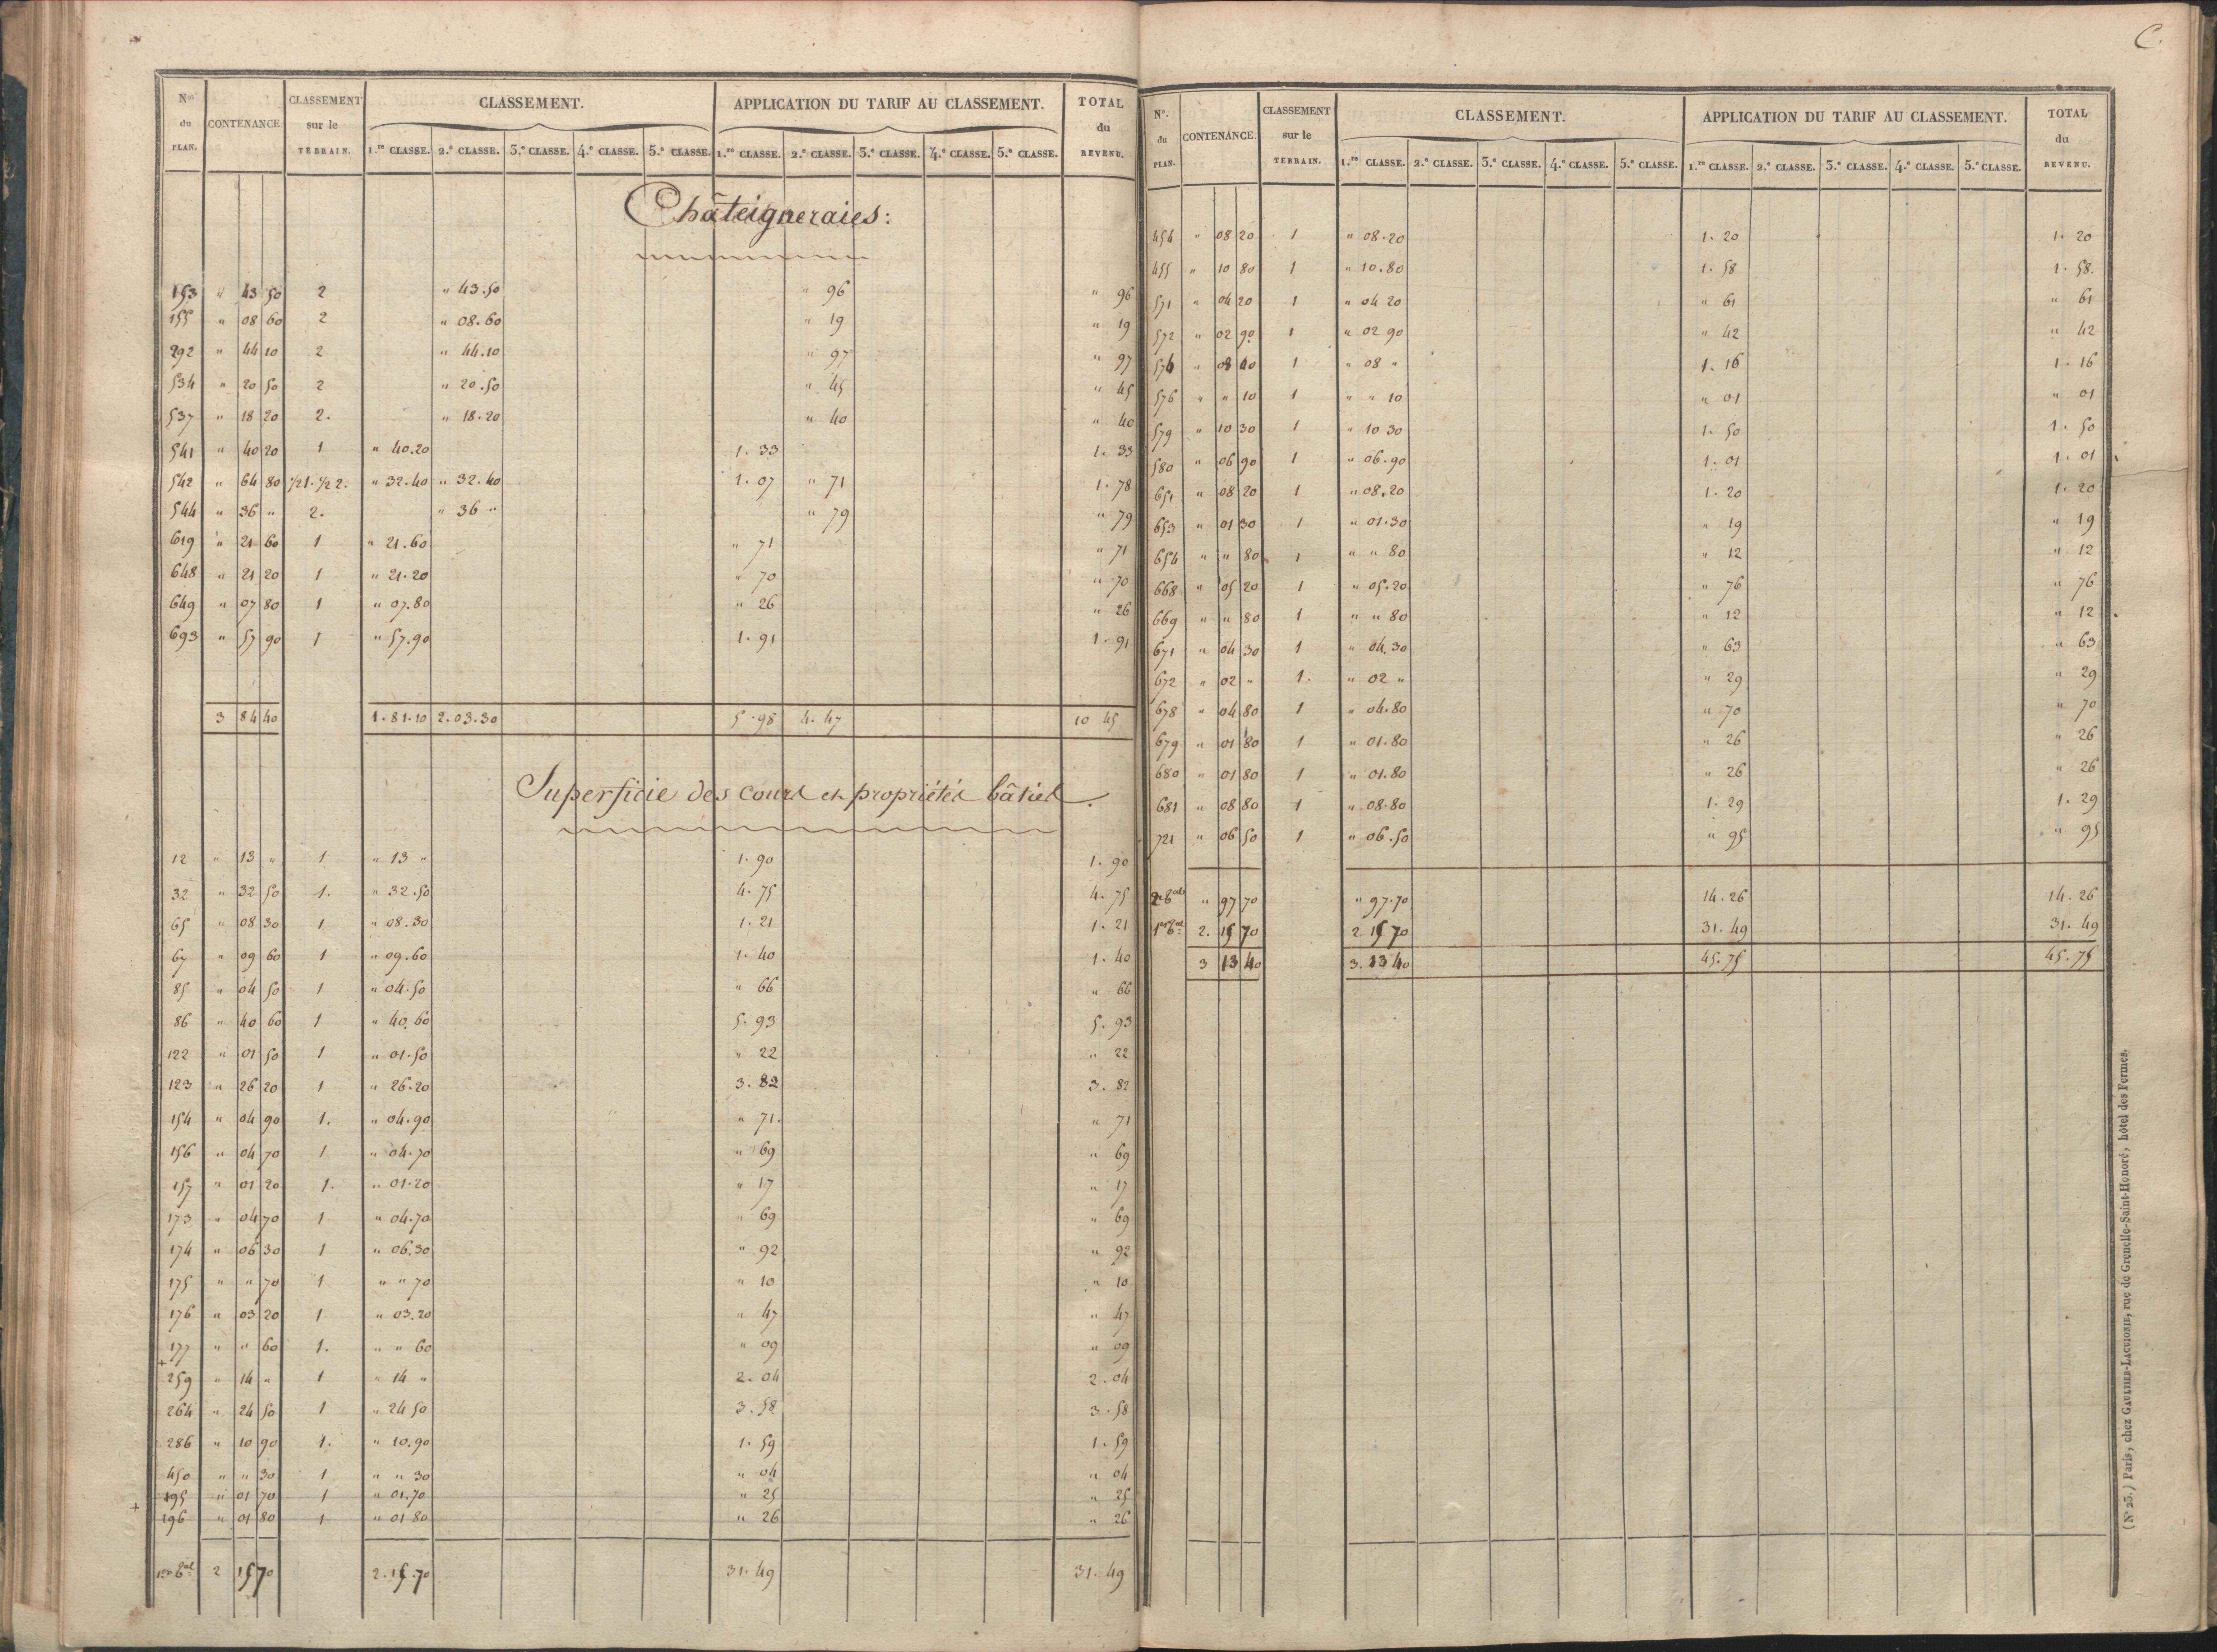 Nos du PLAN. CONTENANCE. CLASSEMENT sur le TERRAIN. CLASSEMENT. APPLICATION DU TARIF AU CLASSEMENT. TOTAL du REVENU.
1.re CLASSE. 2.e CLASSE. 3.e CLASSE. 4.e CLASSE. 5.e CLASSE. 1.re CLASSE. 2.e CLASSE. 3.e CLASSE. 4.e CLASSE. 5.e CLASSE.
Châteigneraies:
153 " 43 50 2 " 43.50 " 96 " 96
155 " 08 60 2 " 08.60 " 19 " 19
292 " 44 10 2 " 44.10 " 97 " 97
534 " 20 50 2 " 20.50 " 45 " 45
537 " 18 20 2. " 18.20 " 40 " 40
541 " 40 20 1 " 40.20 1. 33 1. 33
542 " 64 80 1/2 1. 1/2 2. " 32.40 " 32.40 1. 07 " 71 1. 78
544 " 36 " 2. " 36 " " 79 " 79
619 " 21 60 1 " 21.60 " 71 " 71
648 " 21 20 1 " 21.20 " 70 " 70
649 " 07 80 1 " 07.80 " 26 " 26
693 " 57 90 1 " 57.90 1. 91 1. 91
3 84 40 1.81.10 2.03.30 5.98 4.47 10 45
Superficie des cours et propriétés bâties.
12 " 13 " 1 " 13 " 1. 90 1. 90
32 " 32 50 1. " 32.50 4. 75 4. 75
65 " 08 30 1 " 08.30 1. 21 1. 21
67 " 09 60 1 " 09.60 1. 40 1. 40
85 " 04 50 1 " 04.50 " 66 " 66
86 " 40 60 1 " 40.60 5. 93 5. 93
122 " 01 50 1 " 01.50 " 22 " 22
123 " 26 20 1 " 26.20 3. 82 3. 82
154 " 04 90 1. " 04.90 " 71. " 71
156 " 04 70 1 " 04.70 " 69 " 69
157 " 01 20 1. " 01.20 " 17 " 17
173 " 04 70 1 " 04.70 " 69 " 69
174 " 06 30 1 " 06.30 " 92 " 92
175 " " 70 1 " " 70 " 10 " 10
176 " 03 20 1 " 03.20 " 47 " 47
177 " " 60 1. " " 60 " 09 " 09
+
259 " 14 " 1 " 14 " 2. 04 2. 04
264 " 24 50 1 " 24 50 3. 58 3. 58
286 " 10 90 1. " 10.90 1. 59 1. 59
450 " " 30 1 " " 30 " 04 " 04
195 " 01 70 1 " 01.70 " 25 " 25
+ 196 " 01 80 1 " 01 80 " 26 " 26
2 15 70 2.15.70 31. 49 31. 49
C.
Nos. du PLAN. CONTENANCE. CLASSEMENT sur le TERRAIN. CLASSEMENT. APPLICATION DU TARIF AU CLASSEMENT. TOTAL du REVENU.
1.re CLASSE. 2.e CLASSE. 3.e CLASSE. 4.e CLASSE. 5.e CLASSE. 1.re CLASSE. 2.e CLASSE. 3.e CLASSE. 4.e CLASSE. 5.e CLASSE.
454 " 08 20 1 " 08.20 1. 20 1. 20
455 " 10 80 1 " 10.80 1. 58 1. 58.
571 " 04 20 1 " 04 20 " 61 " 61
572 " 02 90 1 " 02 90 " 42 " 42
574 " 08 1 " 08 " 1. 16 1. 16
576 " " 10 1 " " 10 " 01 " 01
579 " 10 30 1 " 10 30 1. 50 1. 50
580 " 06 90 1 " 06.90 1. 01 1. 01
651 " 08 20 1 " 08.20 1. 20 1. 20
653 " 01 30 1 " 01.30 " 19 " 19
654 " " 80 1 " " 80 " 12 " 12
668 " 05 20 1 " 05.20 " 76 " 76
669 " " 80 1 " " 80 " 12 " 12
671 " 04 30 1 " 04.30 " 63 " 63
672 " 02 " 1. " 02 " " 29 " 29
678 " 04 80 1 " 04.80 " 70 " 70
679 " 01 80 1 " 01.80 " 26 " 26
680 " 01 80 1 " 01.80 " 26 " 26
681 " 08 80 1 " 08.80 1. 29 1. 29
721 " 06 50 1 " 06.50 " 95 " 95
" 97 70 " 97.70 14. 26 14. 26
2. 15 70 2 15 70 31. 49 31. 49
3 13 40 3. 13 40 45. 75 45. 75
(N° 23.) Paris, chez GAULTIER-LAGUIONIE, rue de Grenelle-Saint-Honoré, hôtel des Fermes.